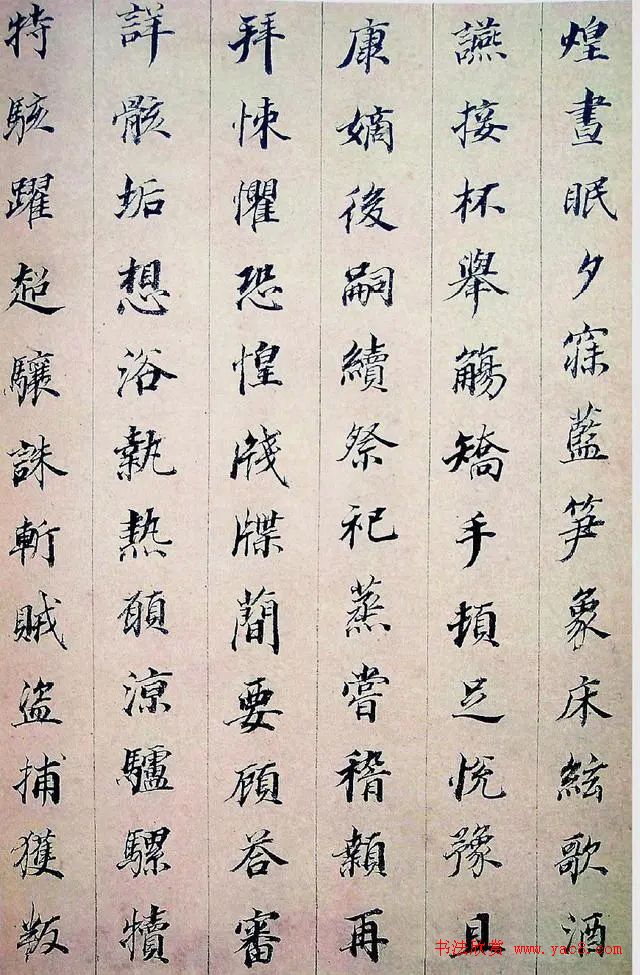 煌晝眠夕寐藍笋象床絃歌酒
讌接杯舉觴矯手頓足悅豫且
康嫡後嗣續祭祀蒸嘗稽顙再
拜悚懼恐惶牋牒簡要顧答審
詳骸垢想浴執熱願涼驢騾犢
特駭躍超驤誅斬賊盜捕獲叛
书法欣赏 www.yac8.com